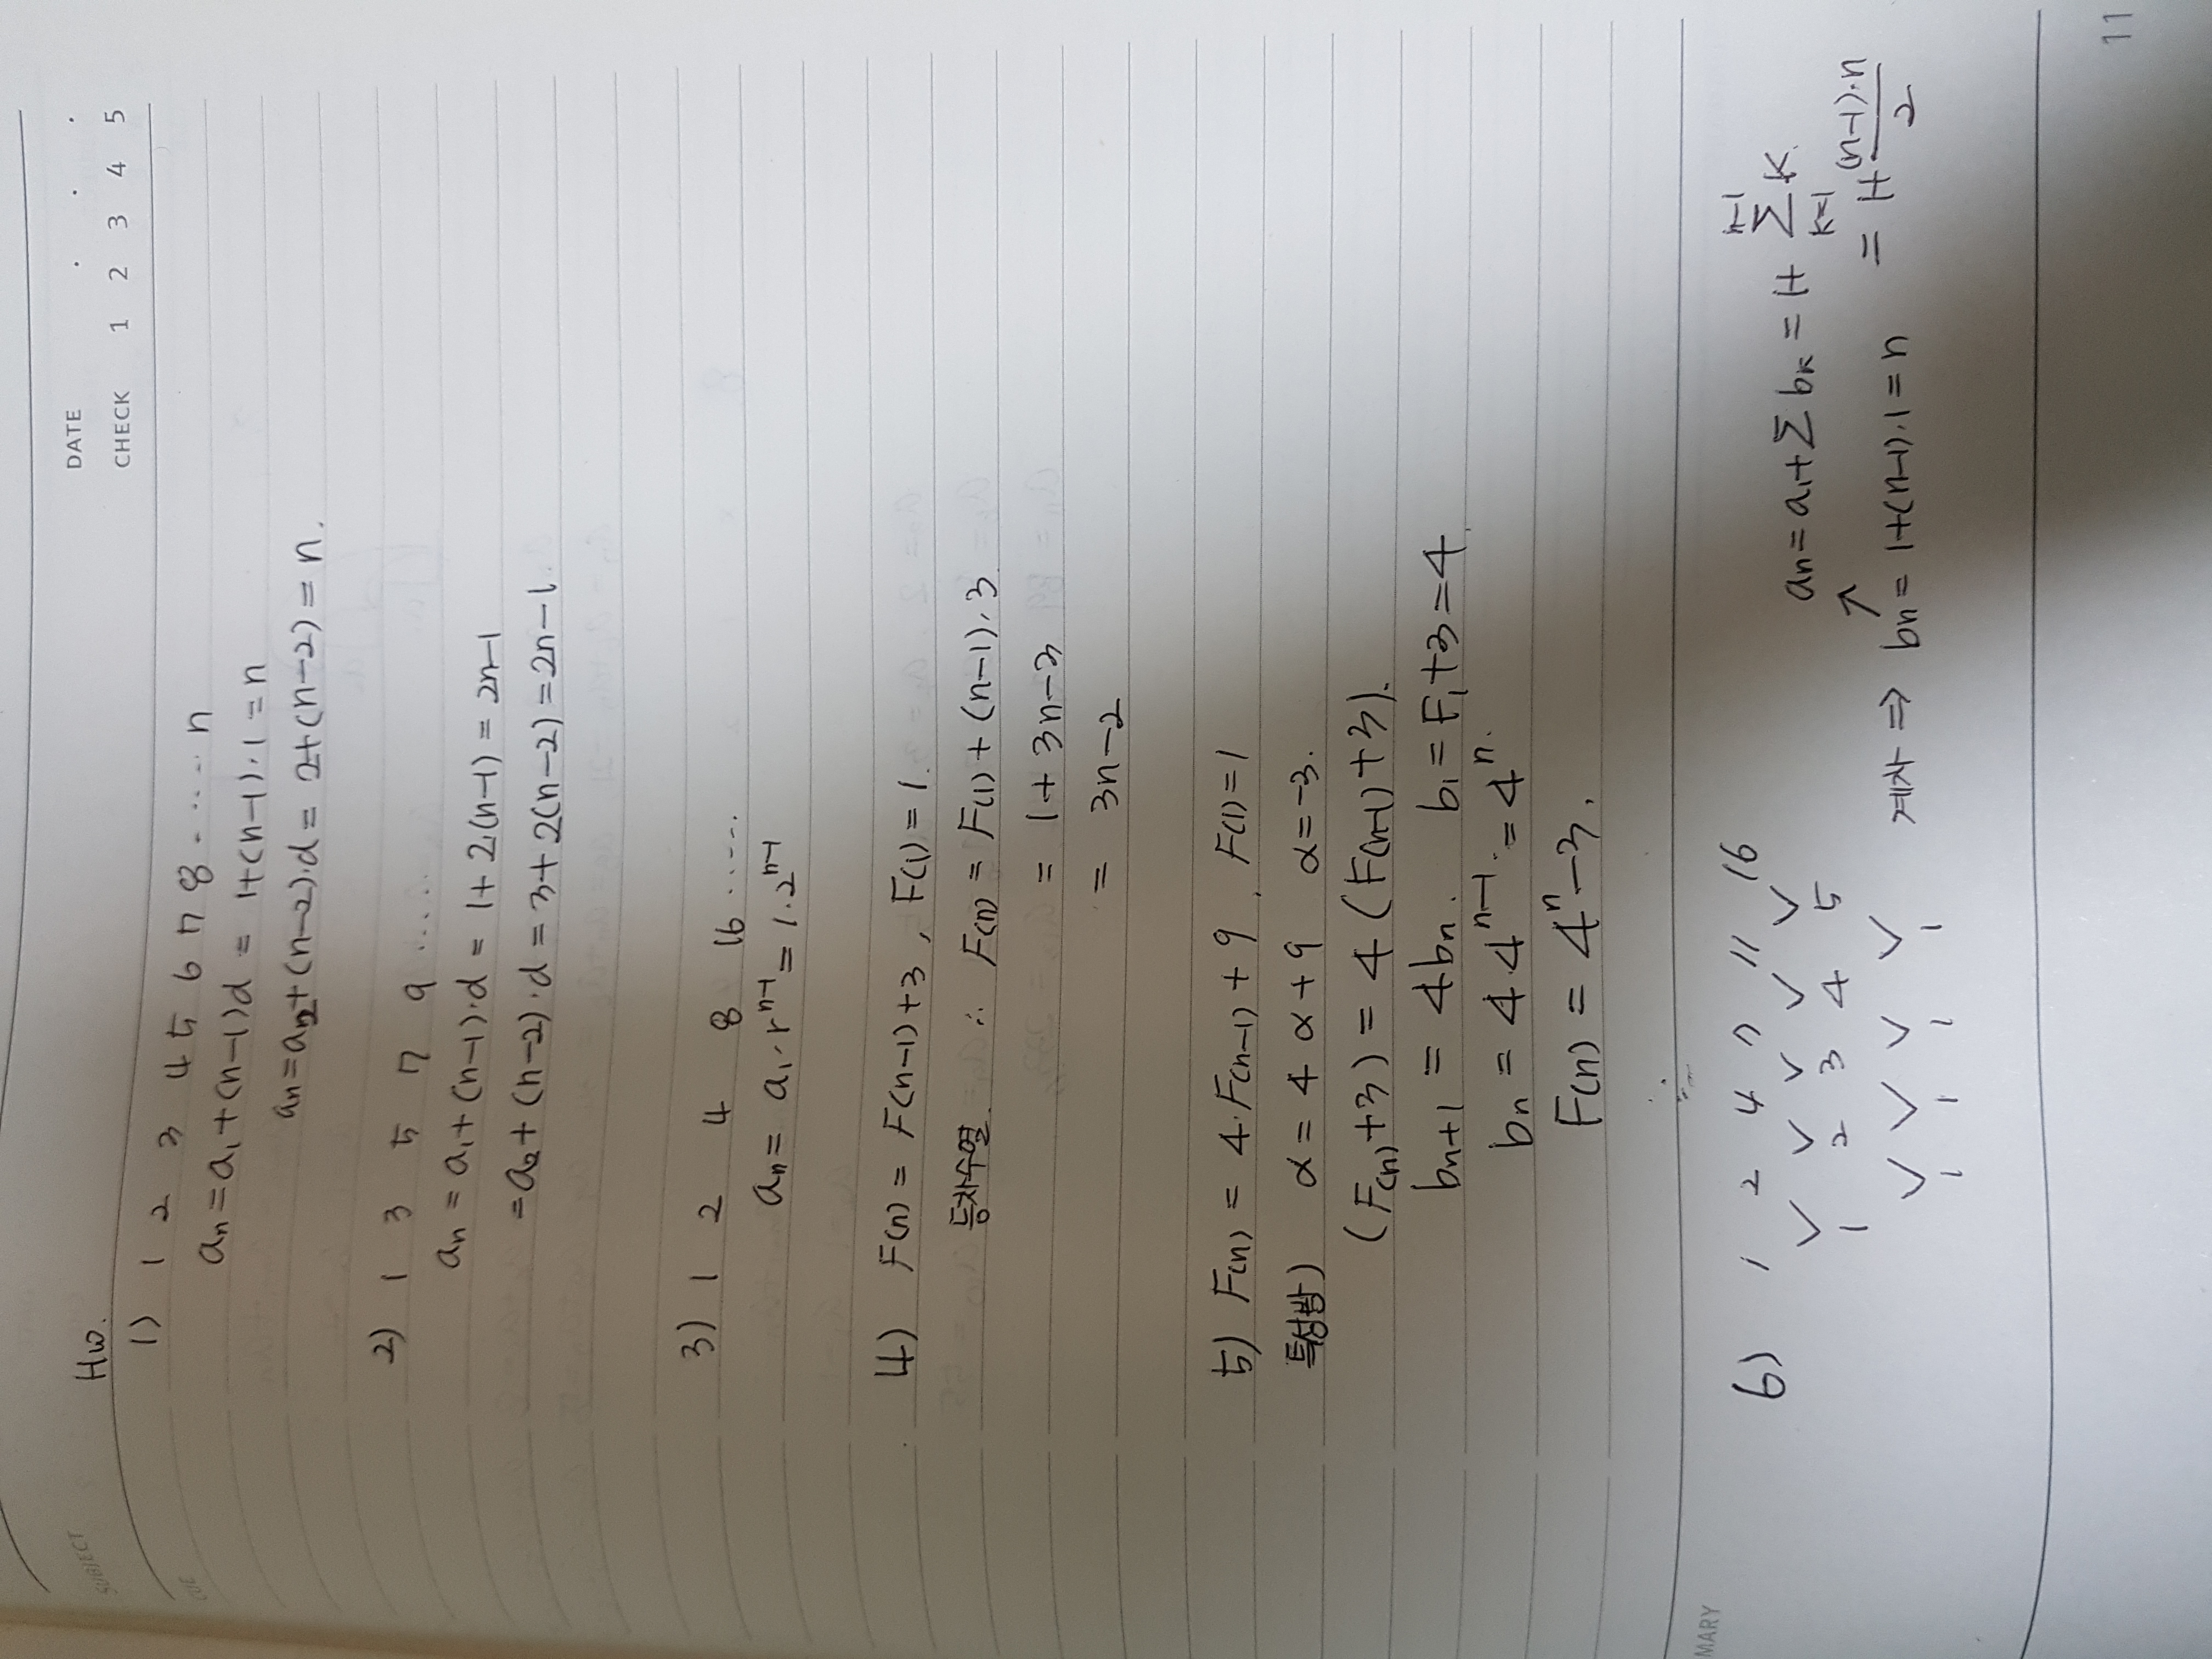 SUBJECT
DATE . . .
CHECK 1 2 3 4 5
CUE
Hw.
1) 1 2 3 4 5 6 7 8 ..... n
an = a1 + (n-1)d = 1+(n-1)·1 = n
an = a2 + (n-2)·d = 2+(n-2) = n.
2) 1 3 5 7 9 .....
an = a1 + (n-1)·d = 1+2·(n-1) = 2n-1
= a2 + (n-2)·d = 3+2(n-2) = 2n-1.
3) 1 2 4 8 16 .....
an = a1·r^(n-1) = 1·2^(n-1)
4) F(n) = F(n-1)+3, F(1) = 1.
등차수열. ∴ F(n) = F(1) + (n-1)·3
= 1+3n-3
= 3n-2
5) F(n) = 4·F(n-1) + 9, F(1) = 1
특성방) α = 4α+9 α = -3.
(F(n)+3) = 4(F(n-1)+3).
bn+1 = 4bn. b1 = F1+3 = 4.
bn = 4·4^(n-1) = 4^n.
F(n) = 4^n-3.
MARY
6) 1 2 4 7 11 16
1 2 3 4 5
1 1 1 1
an = a1+Σbk = 1+ Σ(k=1, n-1) k.
= 1+ (n-1)·n/2
↑
계차 ⇒ bn = 1+(n-1)·1 = n
11